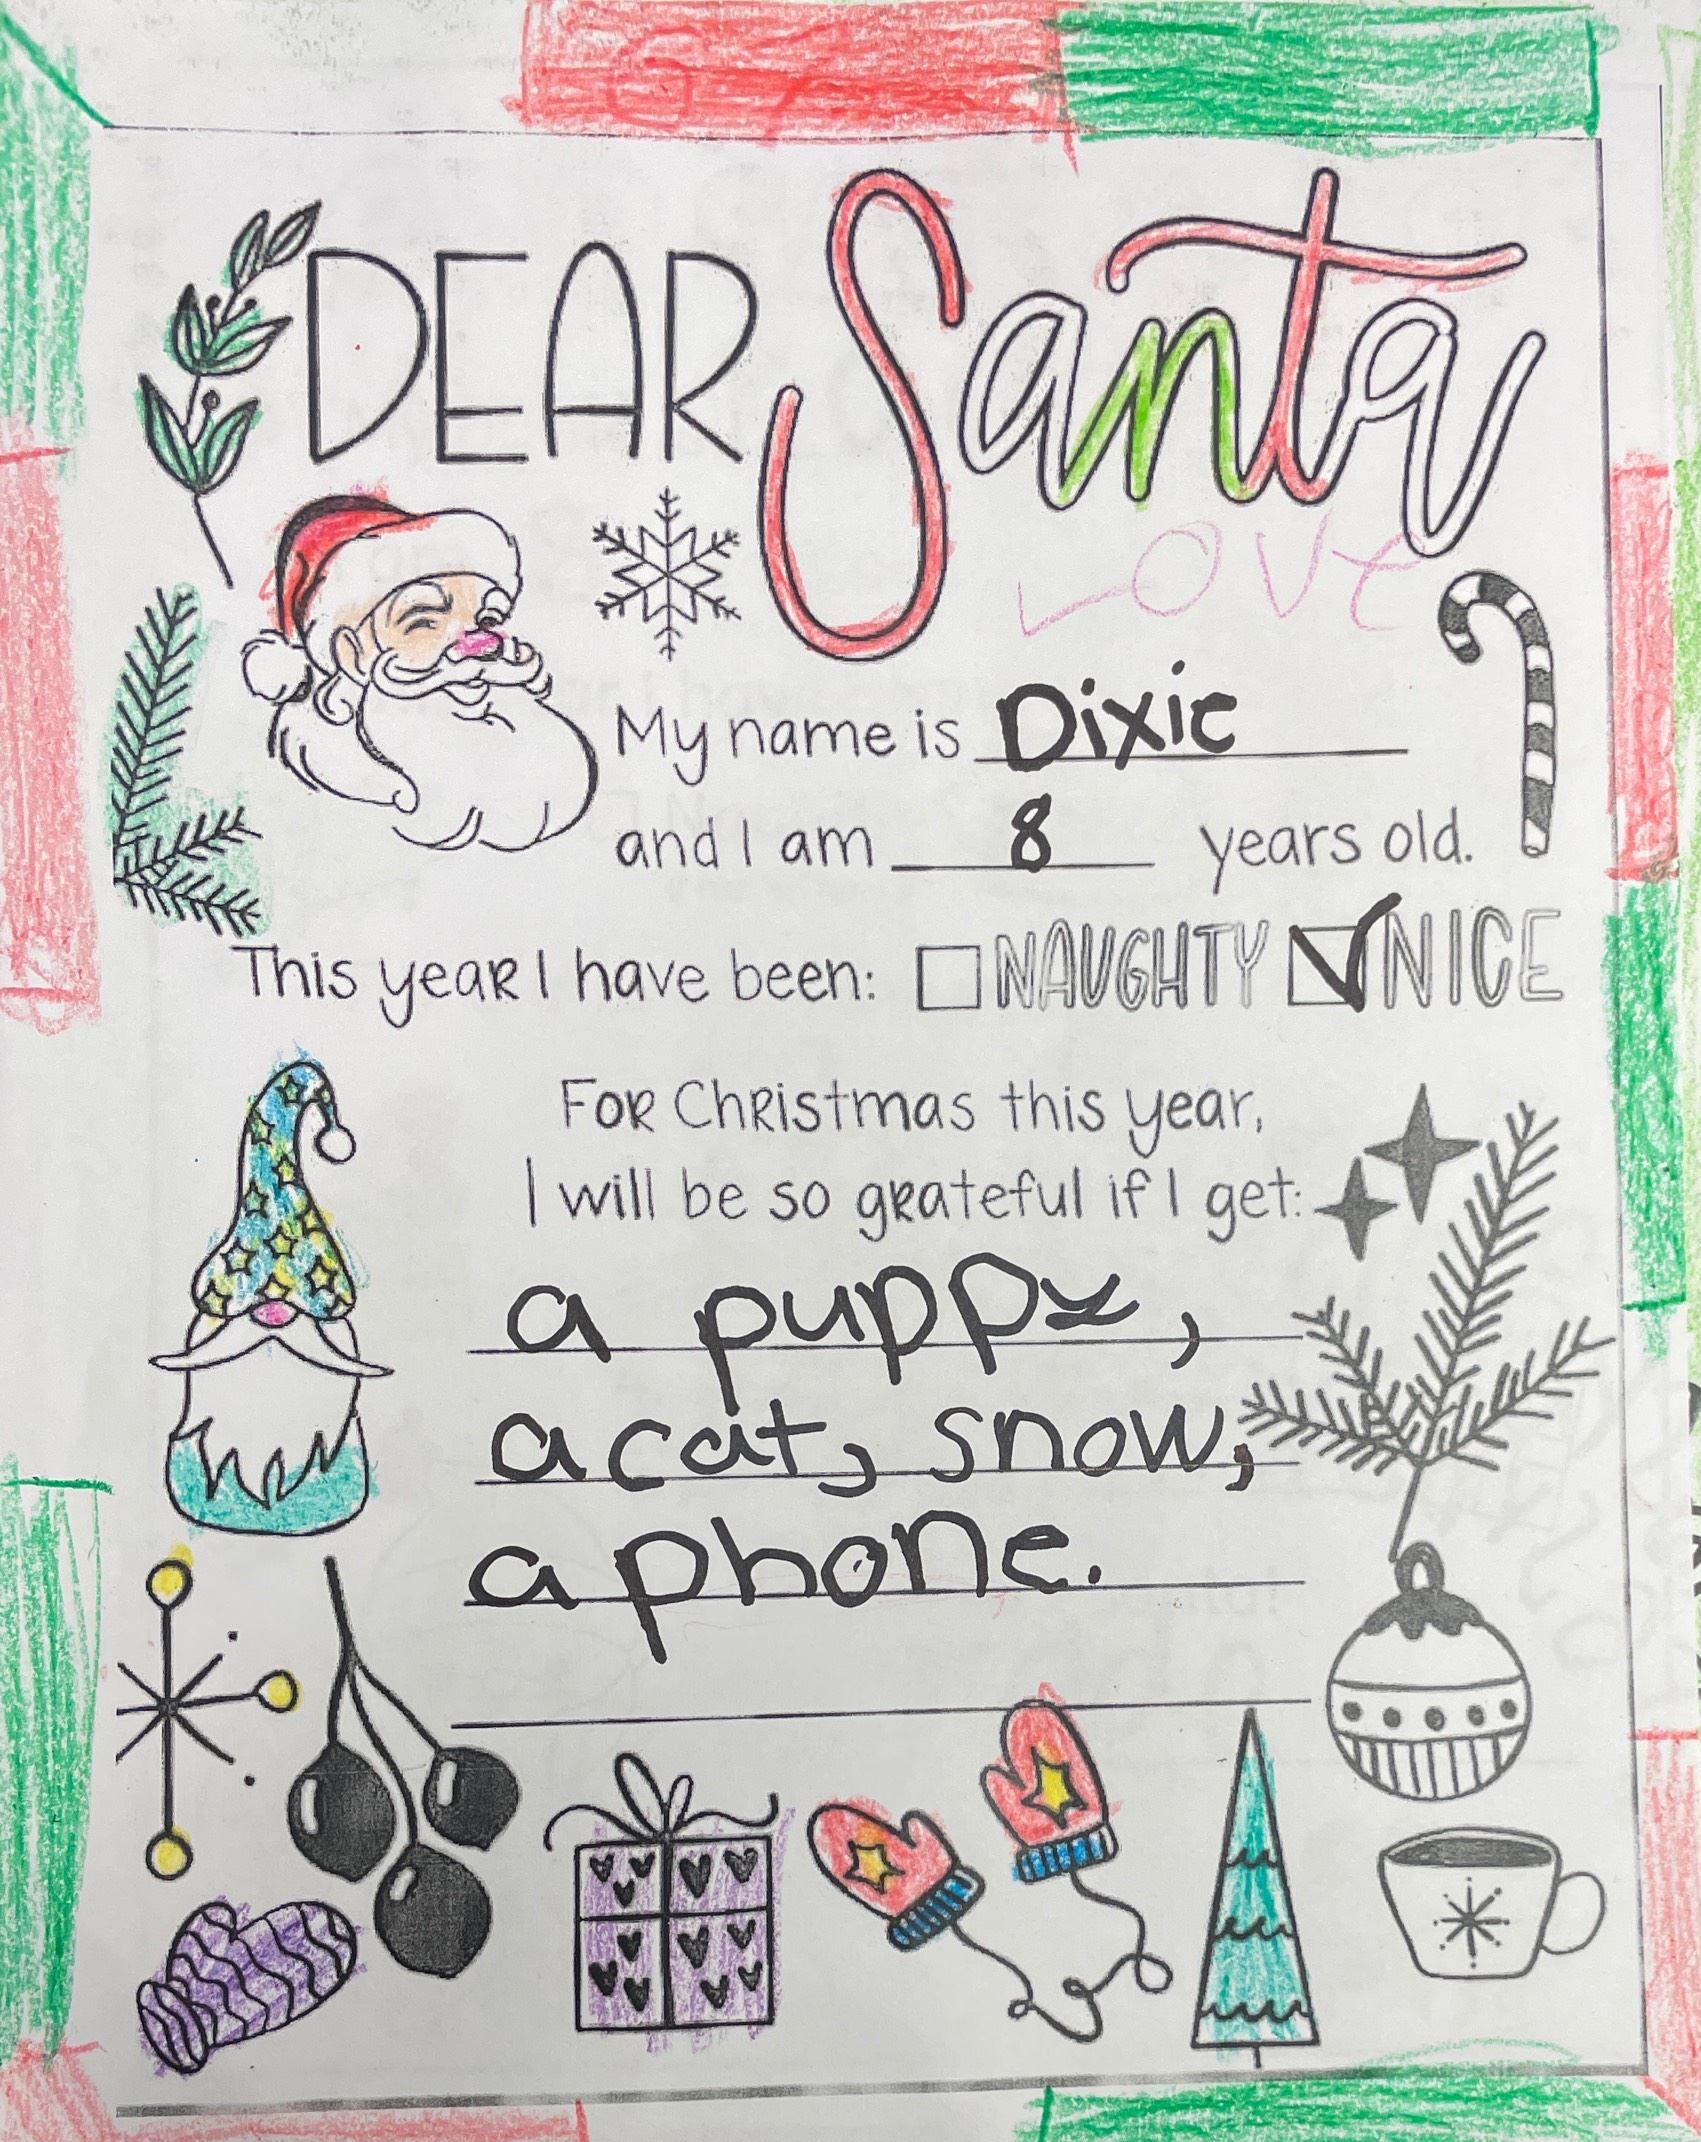 DEAR Santa
LOVE
My name is Dixie
and I am 8 years old.
This year I have been: NAUGHTY NICE
For Christmas this year,
I will be so grateful if I get:
a puppy,
a cat, snow,
a phone.